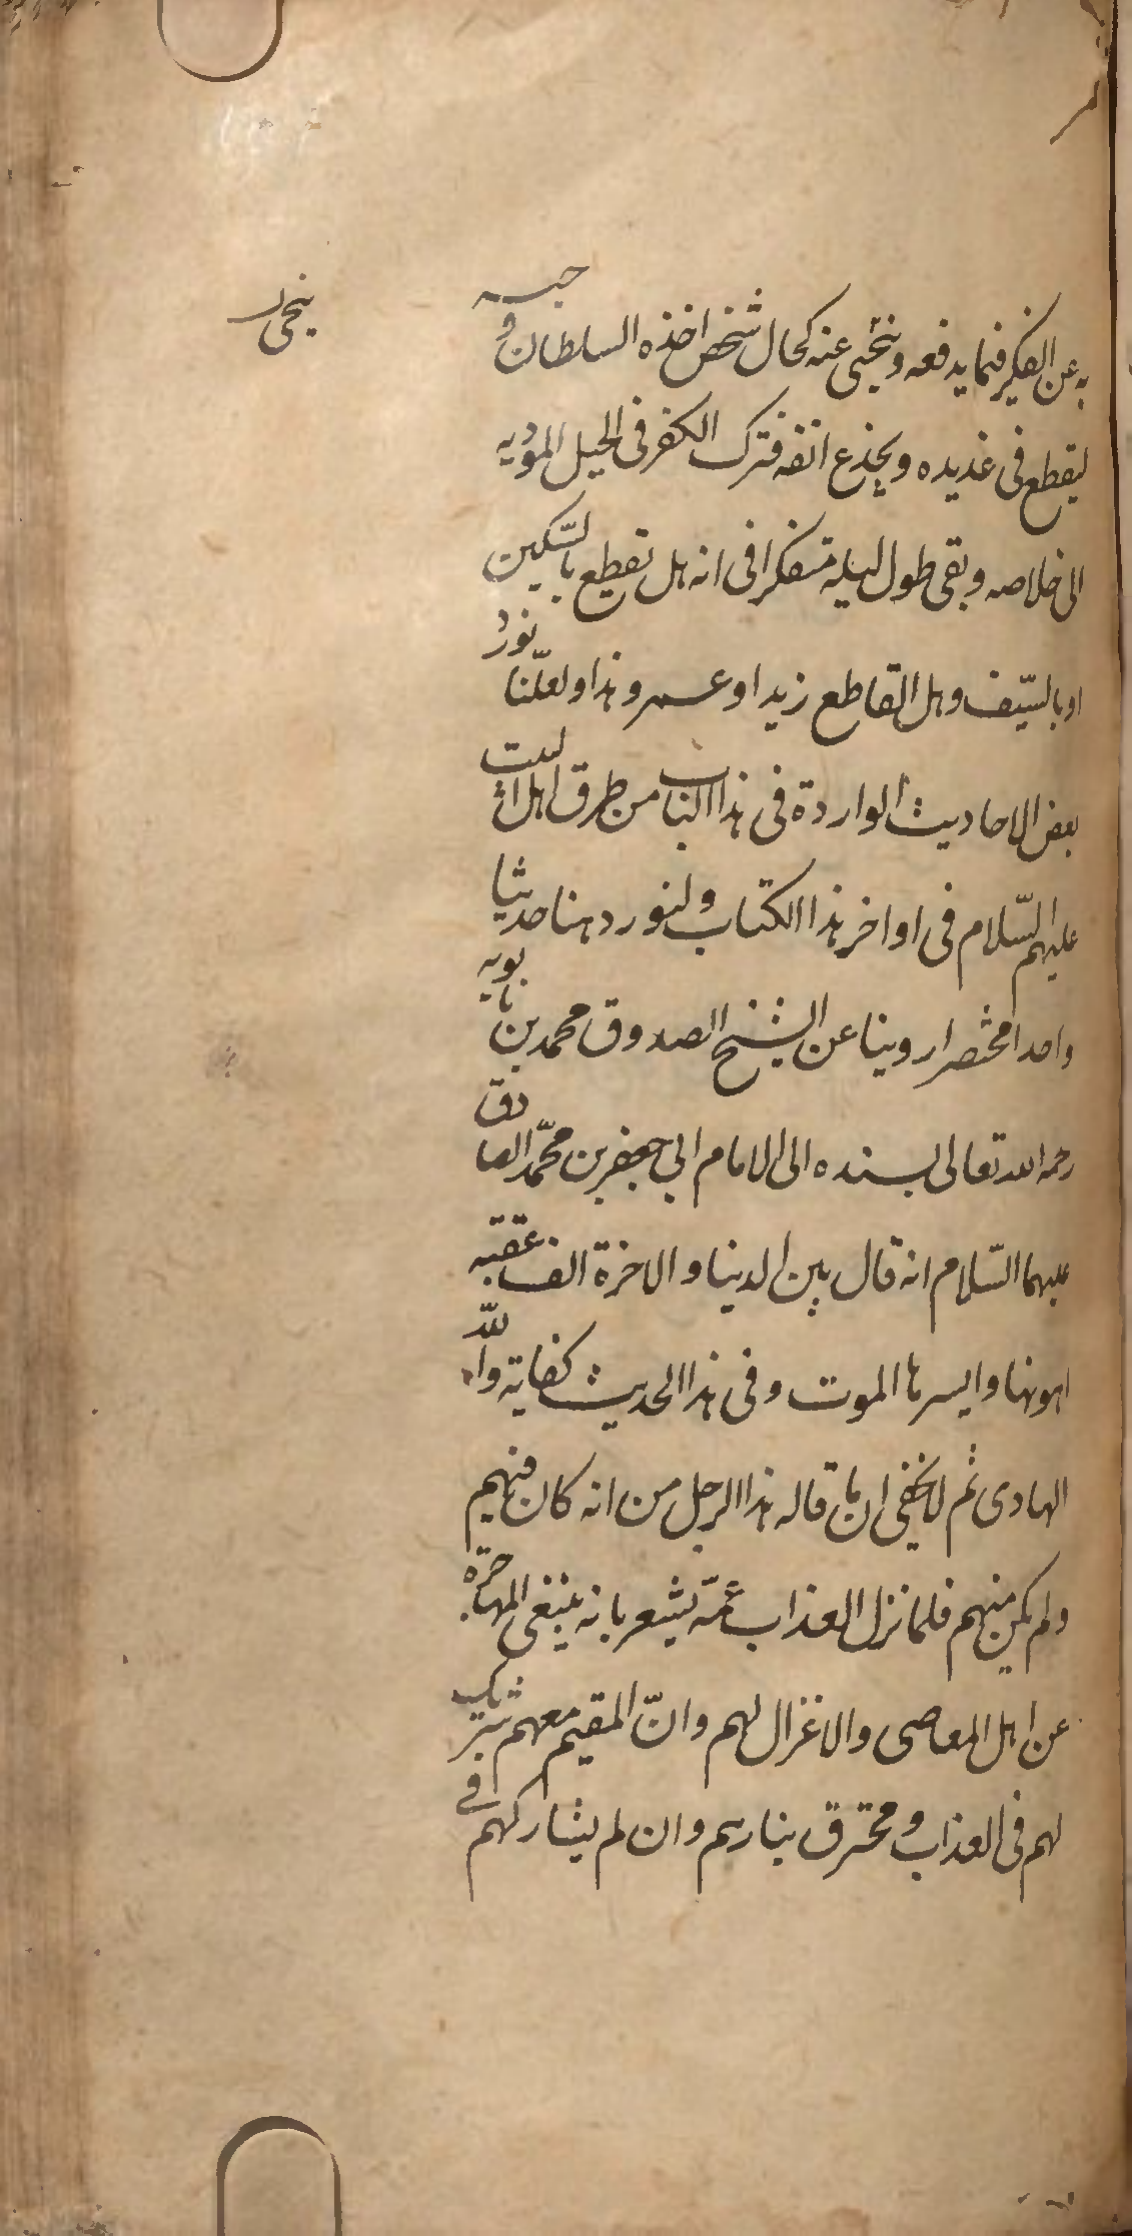 ينجى
به عن الفكر فيما يدفعه وينجى عنه كحال شخص اخذه السلطان وحبسه
ليقطع فى غد يده ويجذع انفه فترك الكفر فى الحيل المؤديه
الى خلاصه وبقى طول ليله متفكرا فى انه هل تقطع بالسّكين
او بالسّيف وهل القاطع زيد او عمرو هذا ولعلّنا نورد
بعض الاحاديث الواردة فى هذا الباب من طرق اهل البيت
عليهم السّلام فى اواخر هذا الكتاب ولنورد هنا حديثا
واحدا مختصرا روينا عن الشيخ الصدوق محمد بن بابويه
رحمه الله تعالى بسنده الى الامام ابي جعفر بن محمّد الصادق
عليهما السّلام انه قال بين الدنيا والاخرة الف عقبه
اهونها وايسرها الموت وفى هذا الحديث كفاية والله
الهادى ثم لا يخفى ان ما قاله هذا الرجل من انه كان فيهم
ولم يكن منهم فلما نزل العذاب عمّه يشعر بانه ينبغى المهاجرة
عن اهل المعاصى والاغزال لهم وانّ المقيم معهم شريك
لهم فى العذاب ومحترق بنارهم وان لم يشاركهم فى